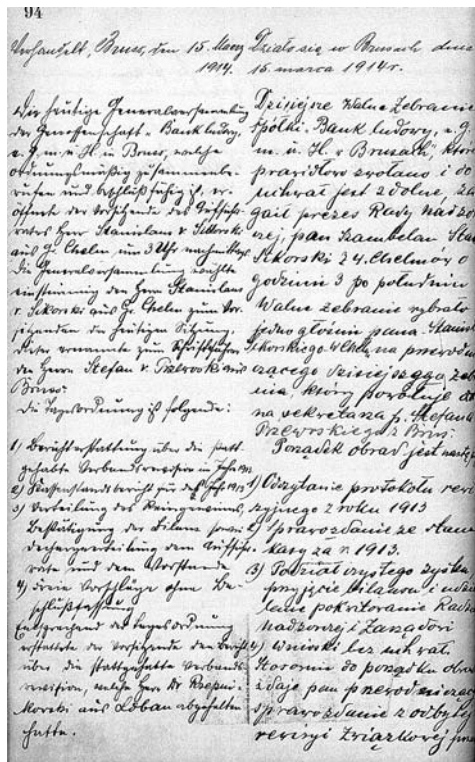 94
Verhandelt, Bruss, den 15. Maerz
1914.
Die heutige Generalversammlung
der Genossenschaft "Bank ludowy,
e. G. m. u. H. in Bruss, welche
ordnungsmäßig zusammenbe-
rufen und beschlußfähig ist, er-
öffnete der Vorsitzende des Aufsichts-
rates Herr Stanislaus v. Sikorski
aus Gr. Chelm um 3 Uhr nachmittags.
Die Generalversammlung wählte
einstimmig den Herrn Stanislaus
v. Sikorski aus Gr. Chelm zum Vor-
sitzenden der heutigen Sitzung,
dieser ernannte zum Schriftführer
den Herrn Stefan v. Przewoski aus
Bruss.
Die Tagesordnung ist folgende:
1) Berichterstattung über die statt-
gehabte Verbandsrevision im Jahre 1913
2) Kassenstandsbericht für das Jahr 1913
3) Verteilung des Reingewinns,
Bestätigung der Bilanz sowie
Dechargeerteilung dem Aufsichts-
rate und dem Vorstande
4) Freie Vorschläge ohne Be-
schlußfassung
Entsprechend der Tagesordnung
erstattete der Vorsitzende den Bericht
über die stattgehabte Verbands-
revision, welche Herr Dr Rzepni-
kowski aus Löbau abgehalten
hatte.
Działo się w Brusach dnia
15. marca 1914 r.
Dzisiejsze Walne Zebranie
Spółki "Bank ludowy, e. G.
m. u. H. w Brusach", które
prawidłowo zwołano i do
uchwał jest zdolne, za-
gaił prezes Rady nadzor
czej, pan Szambelan Stan
Sikorski z W. Chełmów o
godzinie 3 po południu
Walne zebranie wybrało
jednogłośnie pana Stanisł
Sikorskiego W Chełm na przewodni
czącego dzisiejszego zeb
nia, który powołuje do
na sekretarza p. Stefana
Przewoskiego z Brus.
Porządek obrad jest następ
1) Odczytanie protokołu rewi
zyjnego z roku 1913
2) Sprawozdanie ze stanu
kasy za r. 1913.
3) Podział czystego zysku
przyjęcie bilansu i udzie
lenie pokwitowanie Radzie
nadzorczej i Zarządowi
4) Wnioski bez uchwał.
Stosownie do porządku obrad
zdaje pan przewodniczący
sprawozdanie z odbytej
rewizyi Związkowej przez